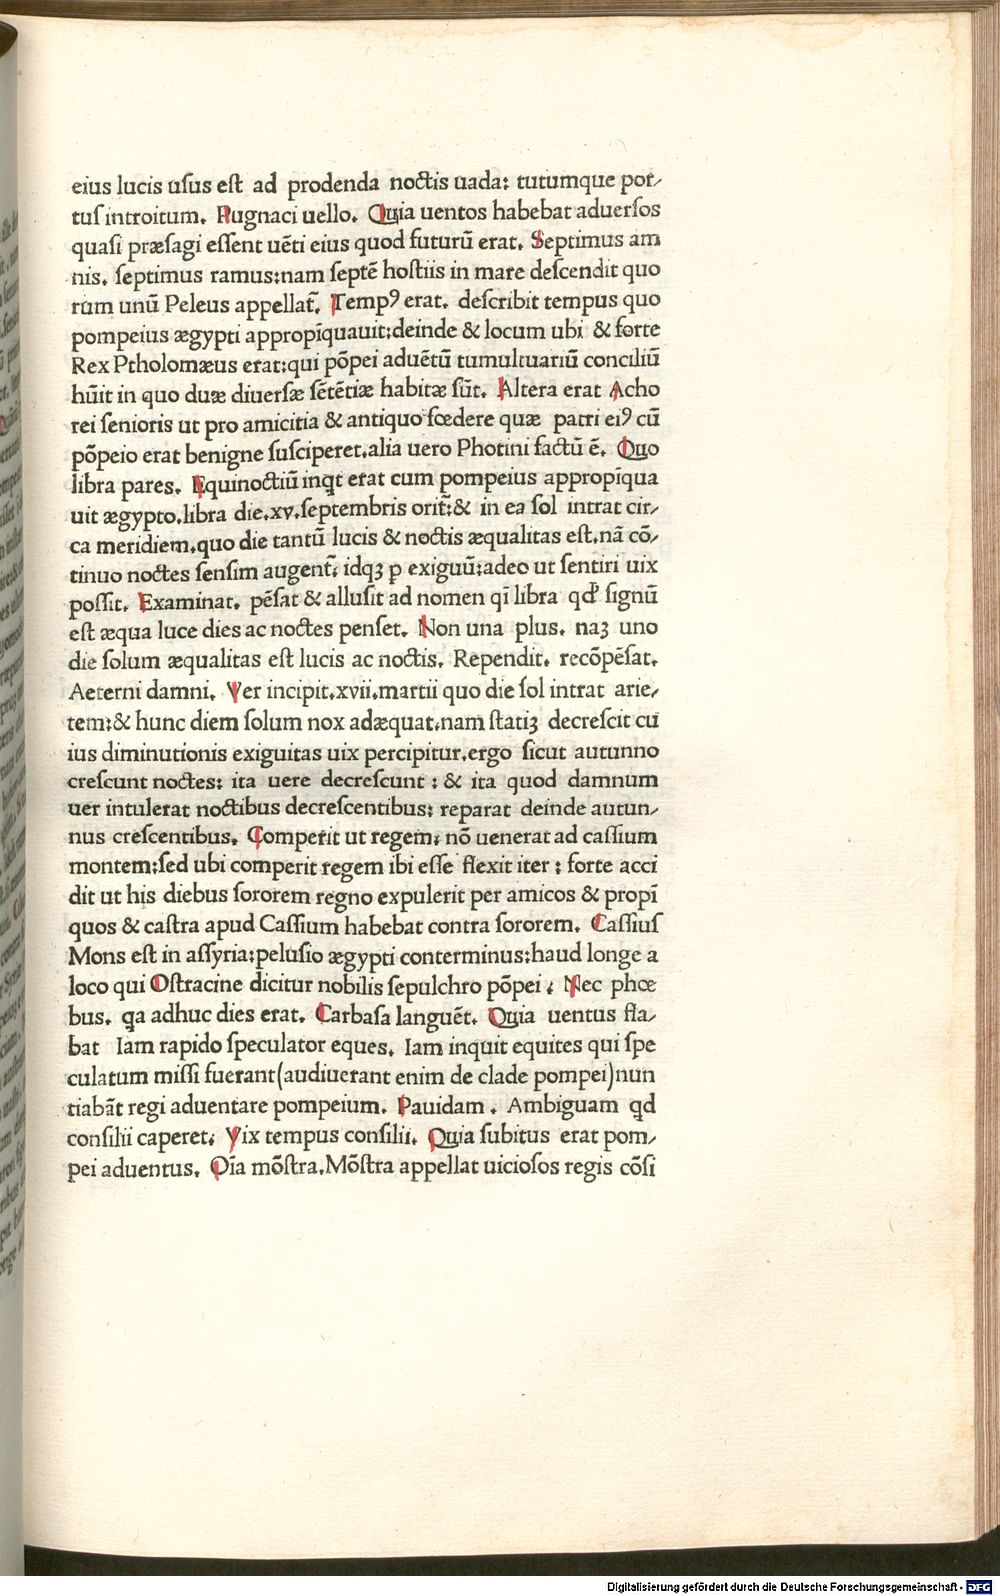 eius lucis usus est ad prodenda noctis uada: tutumque por-
tus introitum. Pugnaci uello. Quia uentos habebat aduersos
quasi præsagi essent uēti eius quod futurū erat. Septimus am
nis. septimus ramus:nam septē hostiis in mare descendit quo
rum unū Peleus appellat̃. Temp⁹ erat. describit tempus quo
pompeius ægypti appropīquauit:deinde & locum ubi & forte
Rex Ptholomæus erat:qui põpei aduētū tumultuariū conciliū
hũit in quo duæ diuersæ sētētiæ habitæ sūt. Altera erat Acho
rei senioris ut pro amicitia & antiquo fœdere quæ patri ei⁹ cū
põpeio erat benigne susciperet.alia uero Photini factū ē. Quo
libra pares. Equinoctiū inqt erat cum pompeius appropīqua
uit ægypto.libra die.xv.septembris orit̃:& in ea sol intrat cir-
ca meridiem.quo die tantū lucis & noctis æqualitas est.nā cō-
tinuo noctes sensim augent̃: idqꝫ p exiguū:adeo ut sentiri uix
possit. Examinat. pēsat & allusit ad nomen qī libra qd' signū
est æqua luce dies ac noctes penset. Non una plus. naꝫ uno
die solum æqualitas est lucis ac noctis. Rependit. recōpēsat.
Aeterni damni. Ver incipit.xvii.martii quo die sol intrat arie-
tem:& hunc diem solum nox adæquat.nam statiꝫ decrescit cu
ius diminutionis exiguitas uix percipitur.ergo sicut autunno
crescunt noctes: ita uere decrescunt : & ita quod damnum
uer intulerat noctibus decrescentibus: reparat deinde autun-
nus crescentibus. Comperit ut regem: nō uenerat ad cassium
montem:sed ubi comperit regem ibi esse flexit iter : forte acci
dit ut his diebus sororem regno expulerit per amicos & propī
quos & castra apud Cassium habebat contra sororem. Cassius
Mons est in assyria:pelusio ægypti conterminus:haud longe a
loco qui Ostracine dicitur nobilis sepulchro põpei : Nec phœ
bus. qa adhuc dies erat. Carbasa languēt. Quia uentus fla-
bat Iam rapido speculator eques. Iam inquit equites qui spe
culatum missi fuerant(audiuerant enim de clade pompei)nun
tiabāt regi aduentare pompeium. Pauidam . Ambiguam qd
consilii caperet: Vix tempus consilii. Quia subitus erat pom-
pei aduentus. Oīa mõstra.Mõstra appellat uiciosos regis cōsi
Digitalisierung gefördert durch die Deutsche Forschungsgemeinschaft - DFG